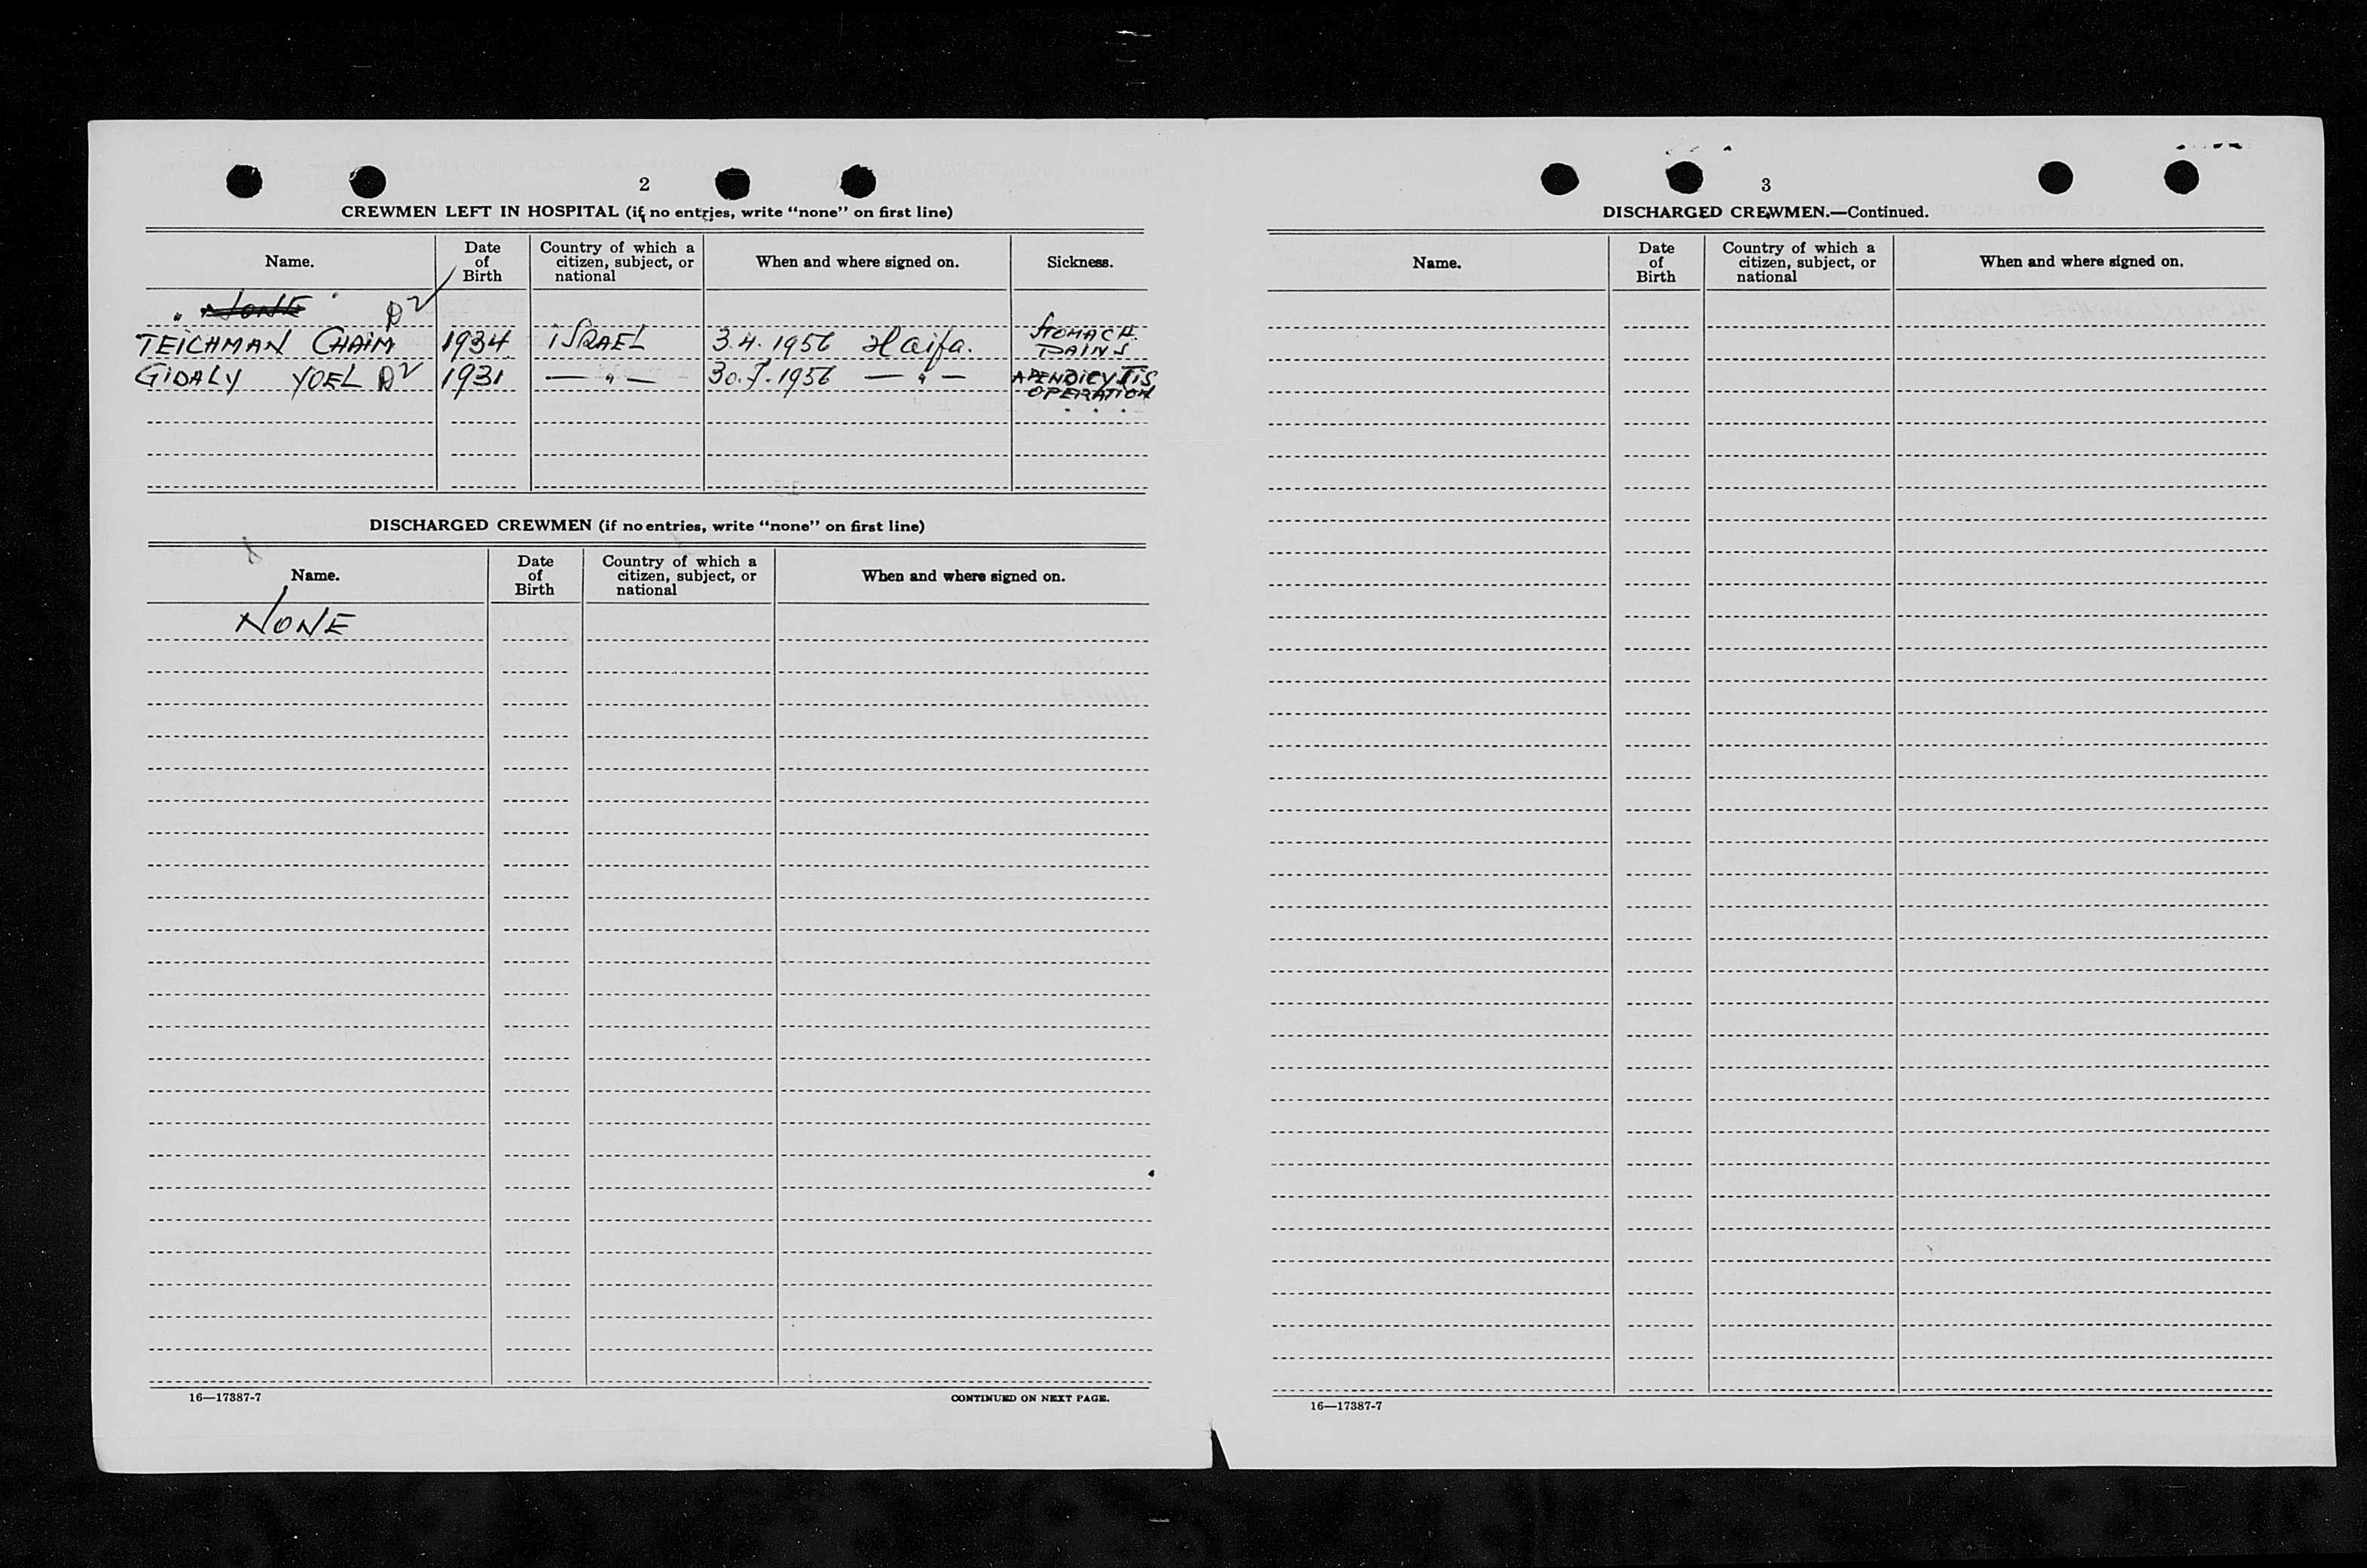 2
CREWMEN LEFT IN HOSPITAL (if no entries, write “none” on first line)
Name. Date of Birth Country of which a citizen, subject, or national When and where signed on. Sickness.
" NONE " D2
TEICHMAN CHAIM 1934 ISRAEL 3.4.1956 Haifa. STOMACH PAINS
GIDALY YOEL D2 1931 — " — 30.7.1956 — " — APENDICYTIS OPERATION
DISCHARGED CREWMEN (if no entries, write “none” on first line)
Name. Date of Birth Country of which a citizen, subject, or national When and where signed on.
NONE
16—17387-7 CONTINUED ON NEXT PAGE.
3
DISCHARGED CREWMEN.—Continued.
Name. Date of Birth Country of which a citizen, subject, or national When and where signed on.
16—17387-7